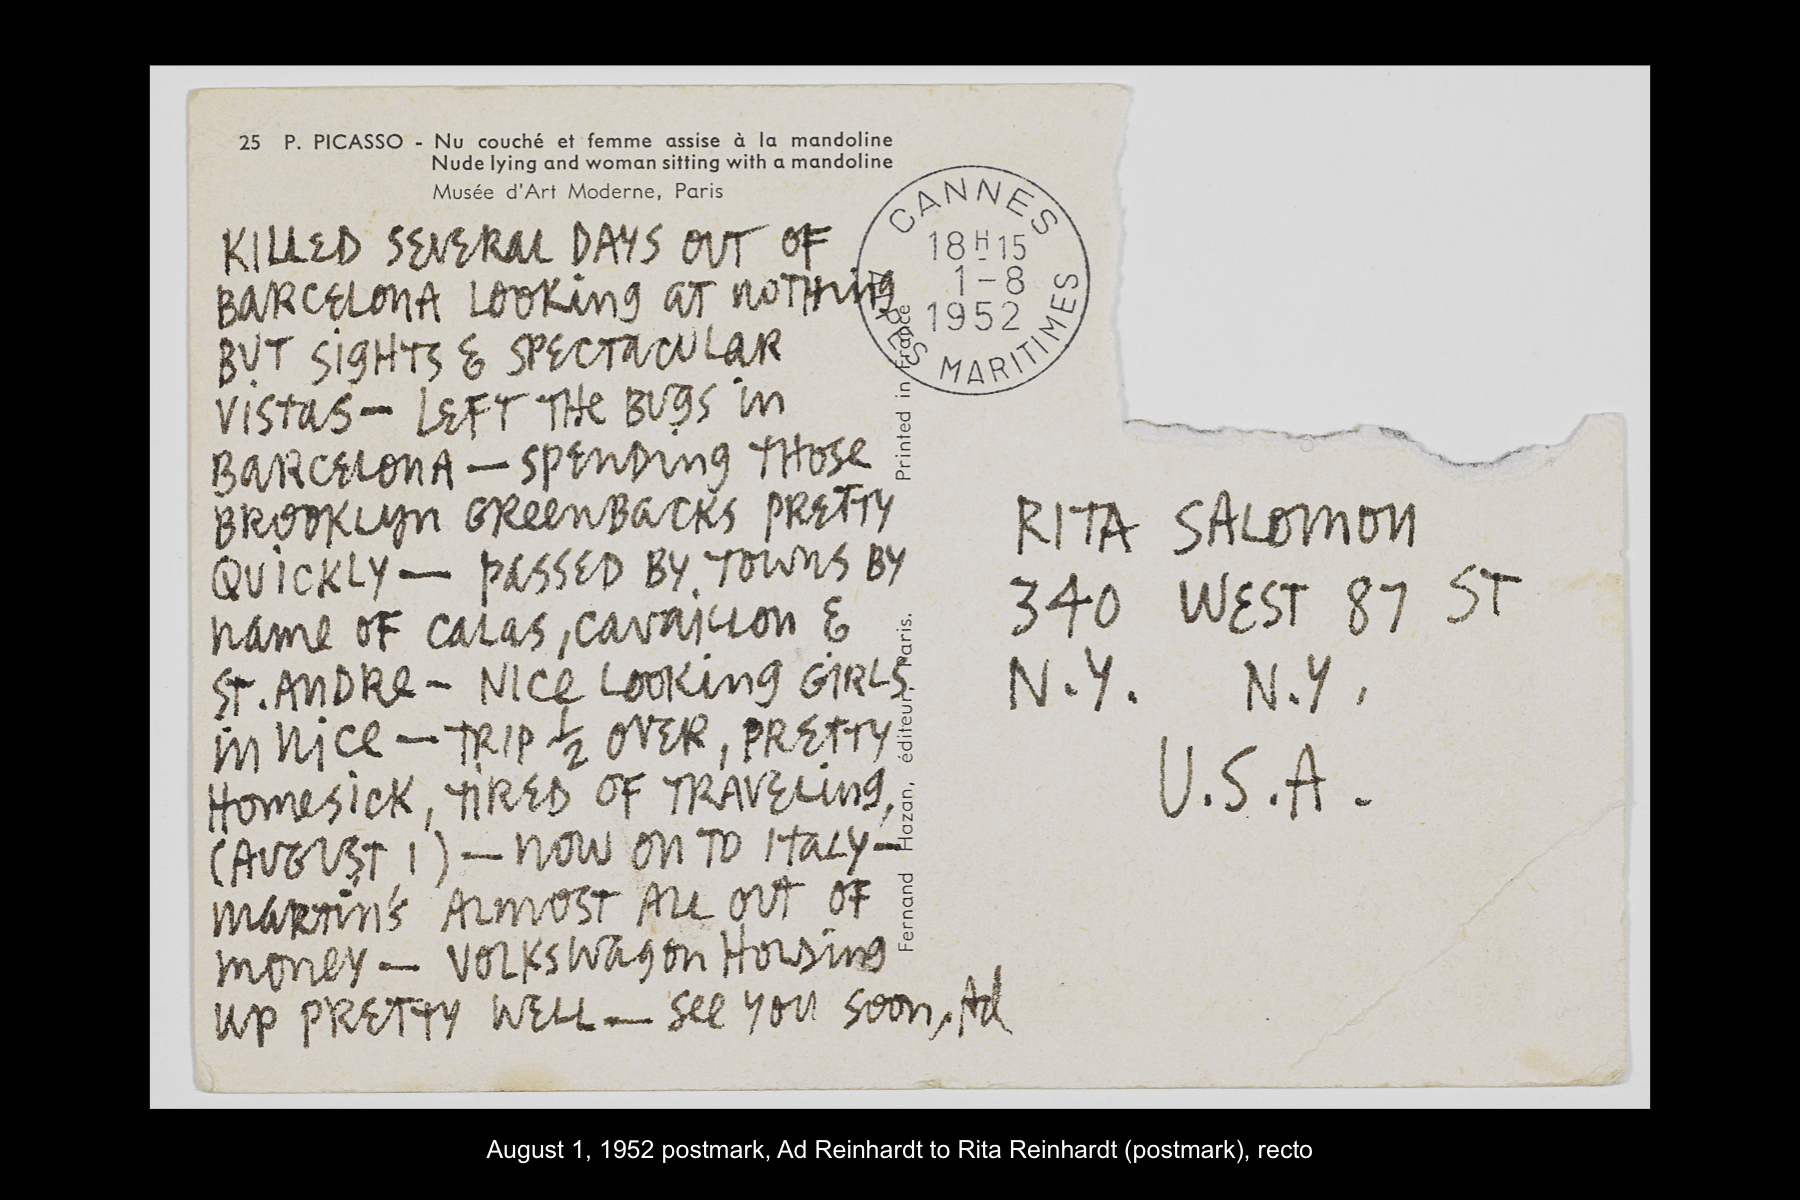 25 P. PICASSO - Nu couché et femme assise à la mandoline
Nude lying and woman sitting with a mandoline
Musée d'Art Moderne, Paris
KILLED SEVERAL DAYS OUT OF
BARCELONA LOOKING AT NOTHING
BUT SIGHTS & SPECTACULAR
VISTAS — LEFT THE BUGS IN
BARCELONA — SPENDING THOSE
BROOKLYN GREENBACKS PRETTY
QUICKLY — PASSED BY TOWNS BY
NAME OF CALAS, CAVAILLON &
ST. ANDRE - NICE LOOKING GIRLS
IN NICE — TRIP ½ OVER, PRETTY
HOMESICK, TIRED OF TRAVELING,
(AUGUST 1) — NOW ON TO ITALY —
MARTIN'S ALMOST ALL OUT OF
MONEY — VOLKSWAGON HOLDING
UP PRETTY WELL — SEE YOU SOON, Ad
CANNES
18H15
1-8
1952
ALPES MARITIMES
Fernand Hazan, éditeur, Paris. Printed in France
RITA SALOMON
340 WEST 87 ST
N.Y. N.Y.
U.S.A.
August 1, 1952 postmark, Ad Reinhardt to Rita Reinhardt (postmark), recto